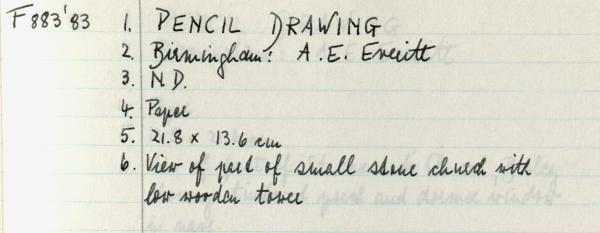 F883'83
1. PENCIL DRAWING
2. Birmingham: A. E. Everitt
3. N.D.
4. Paper
5. 21.8 x 13.6 cm
6. View of part of small stone church with
low wooden tower